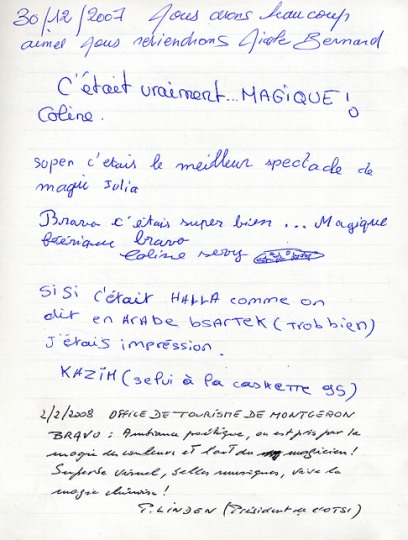 30/12/2007 Nous avons beaucoup
aimé nous reviendrons Nicole Bernard
C'était vraiment... MAGIQUE !
Coline.
super c'etais le meilleur spectacle de
magie Julia
Bravo c'étais super bien ... Magique
féérique bravo
Coline
SiSi C'était HALLA comme on
dit en ARABE bsARTEK (TROBBIEN)
J'étais impression.
KAZIM (selui à la caskette 95)
2/2/2008 OFFICE DE TOURISME DE MONTGERON
BRAVO : Ambiance poétique, on est pris par la
magie des couleurs et l'art du magicien !
Superbe visuel, belles musiques, vive la
magie chinoise !
P. LINDEN (Président de l'OTSI)